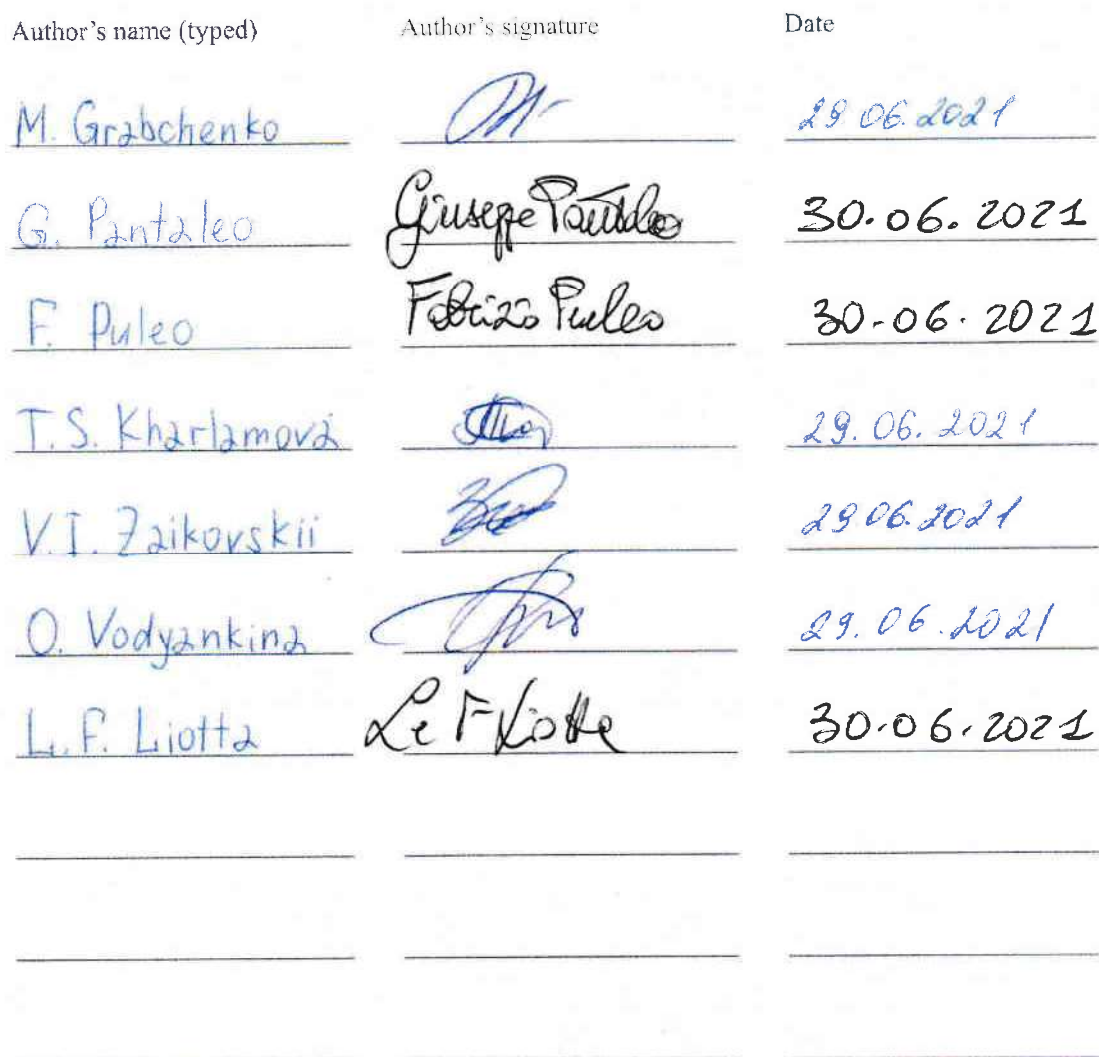 Author's name (typed) Author's signature Date
M. Grabchenko 29 06.2021
G. Pantaleo Giuseppe Pantaleo 30.06.2021
F. Puleo Fabrizio Puleo 30-06.2021
T.S. Kharlamova 29.06.2021
V.I. Zaikovskii 29 06.2021
O. Vodyankina 29.06.2021
L.F. Liotta L F Liotta 30.06.2021